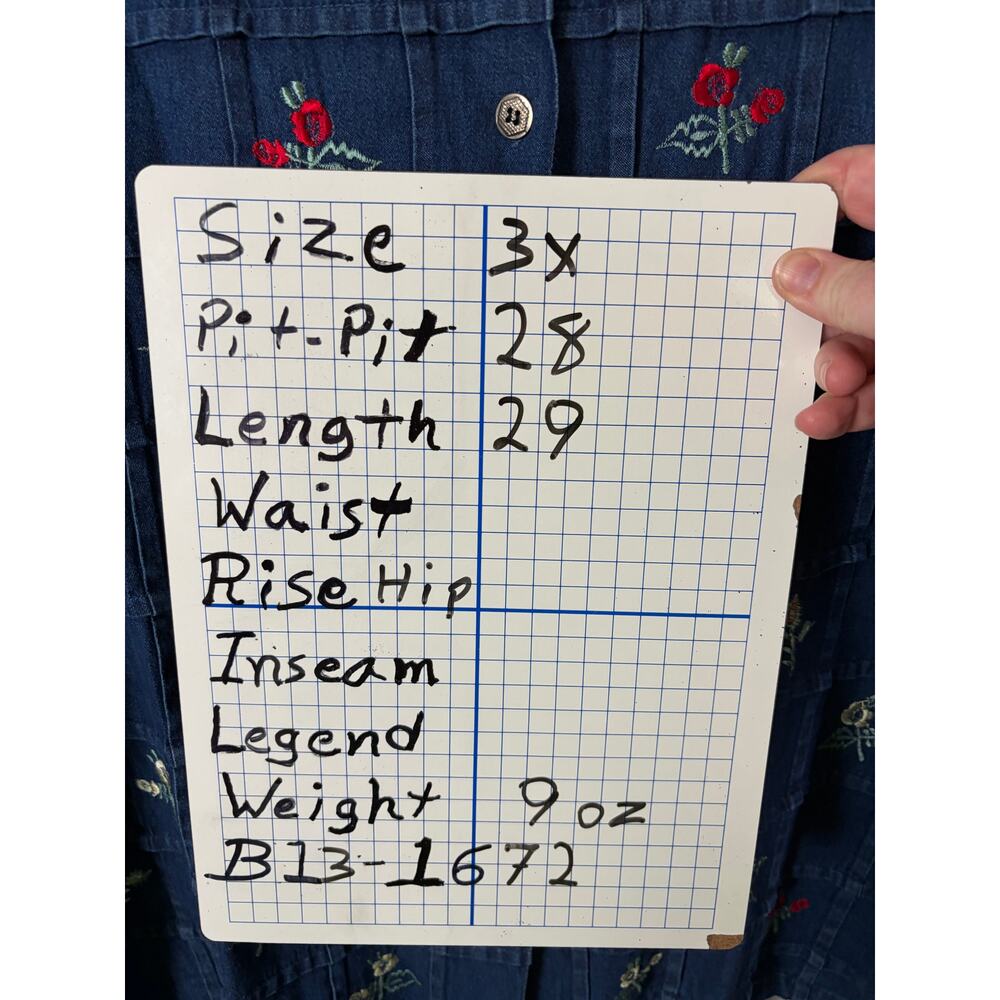 Size 3X
Pit-Pit 28
Length 29
Waist
Rise Hip
Inseam
Legend
Weight 9 oz
B13-1672